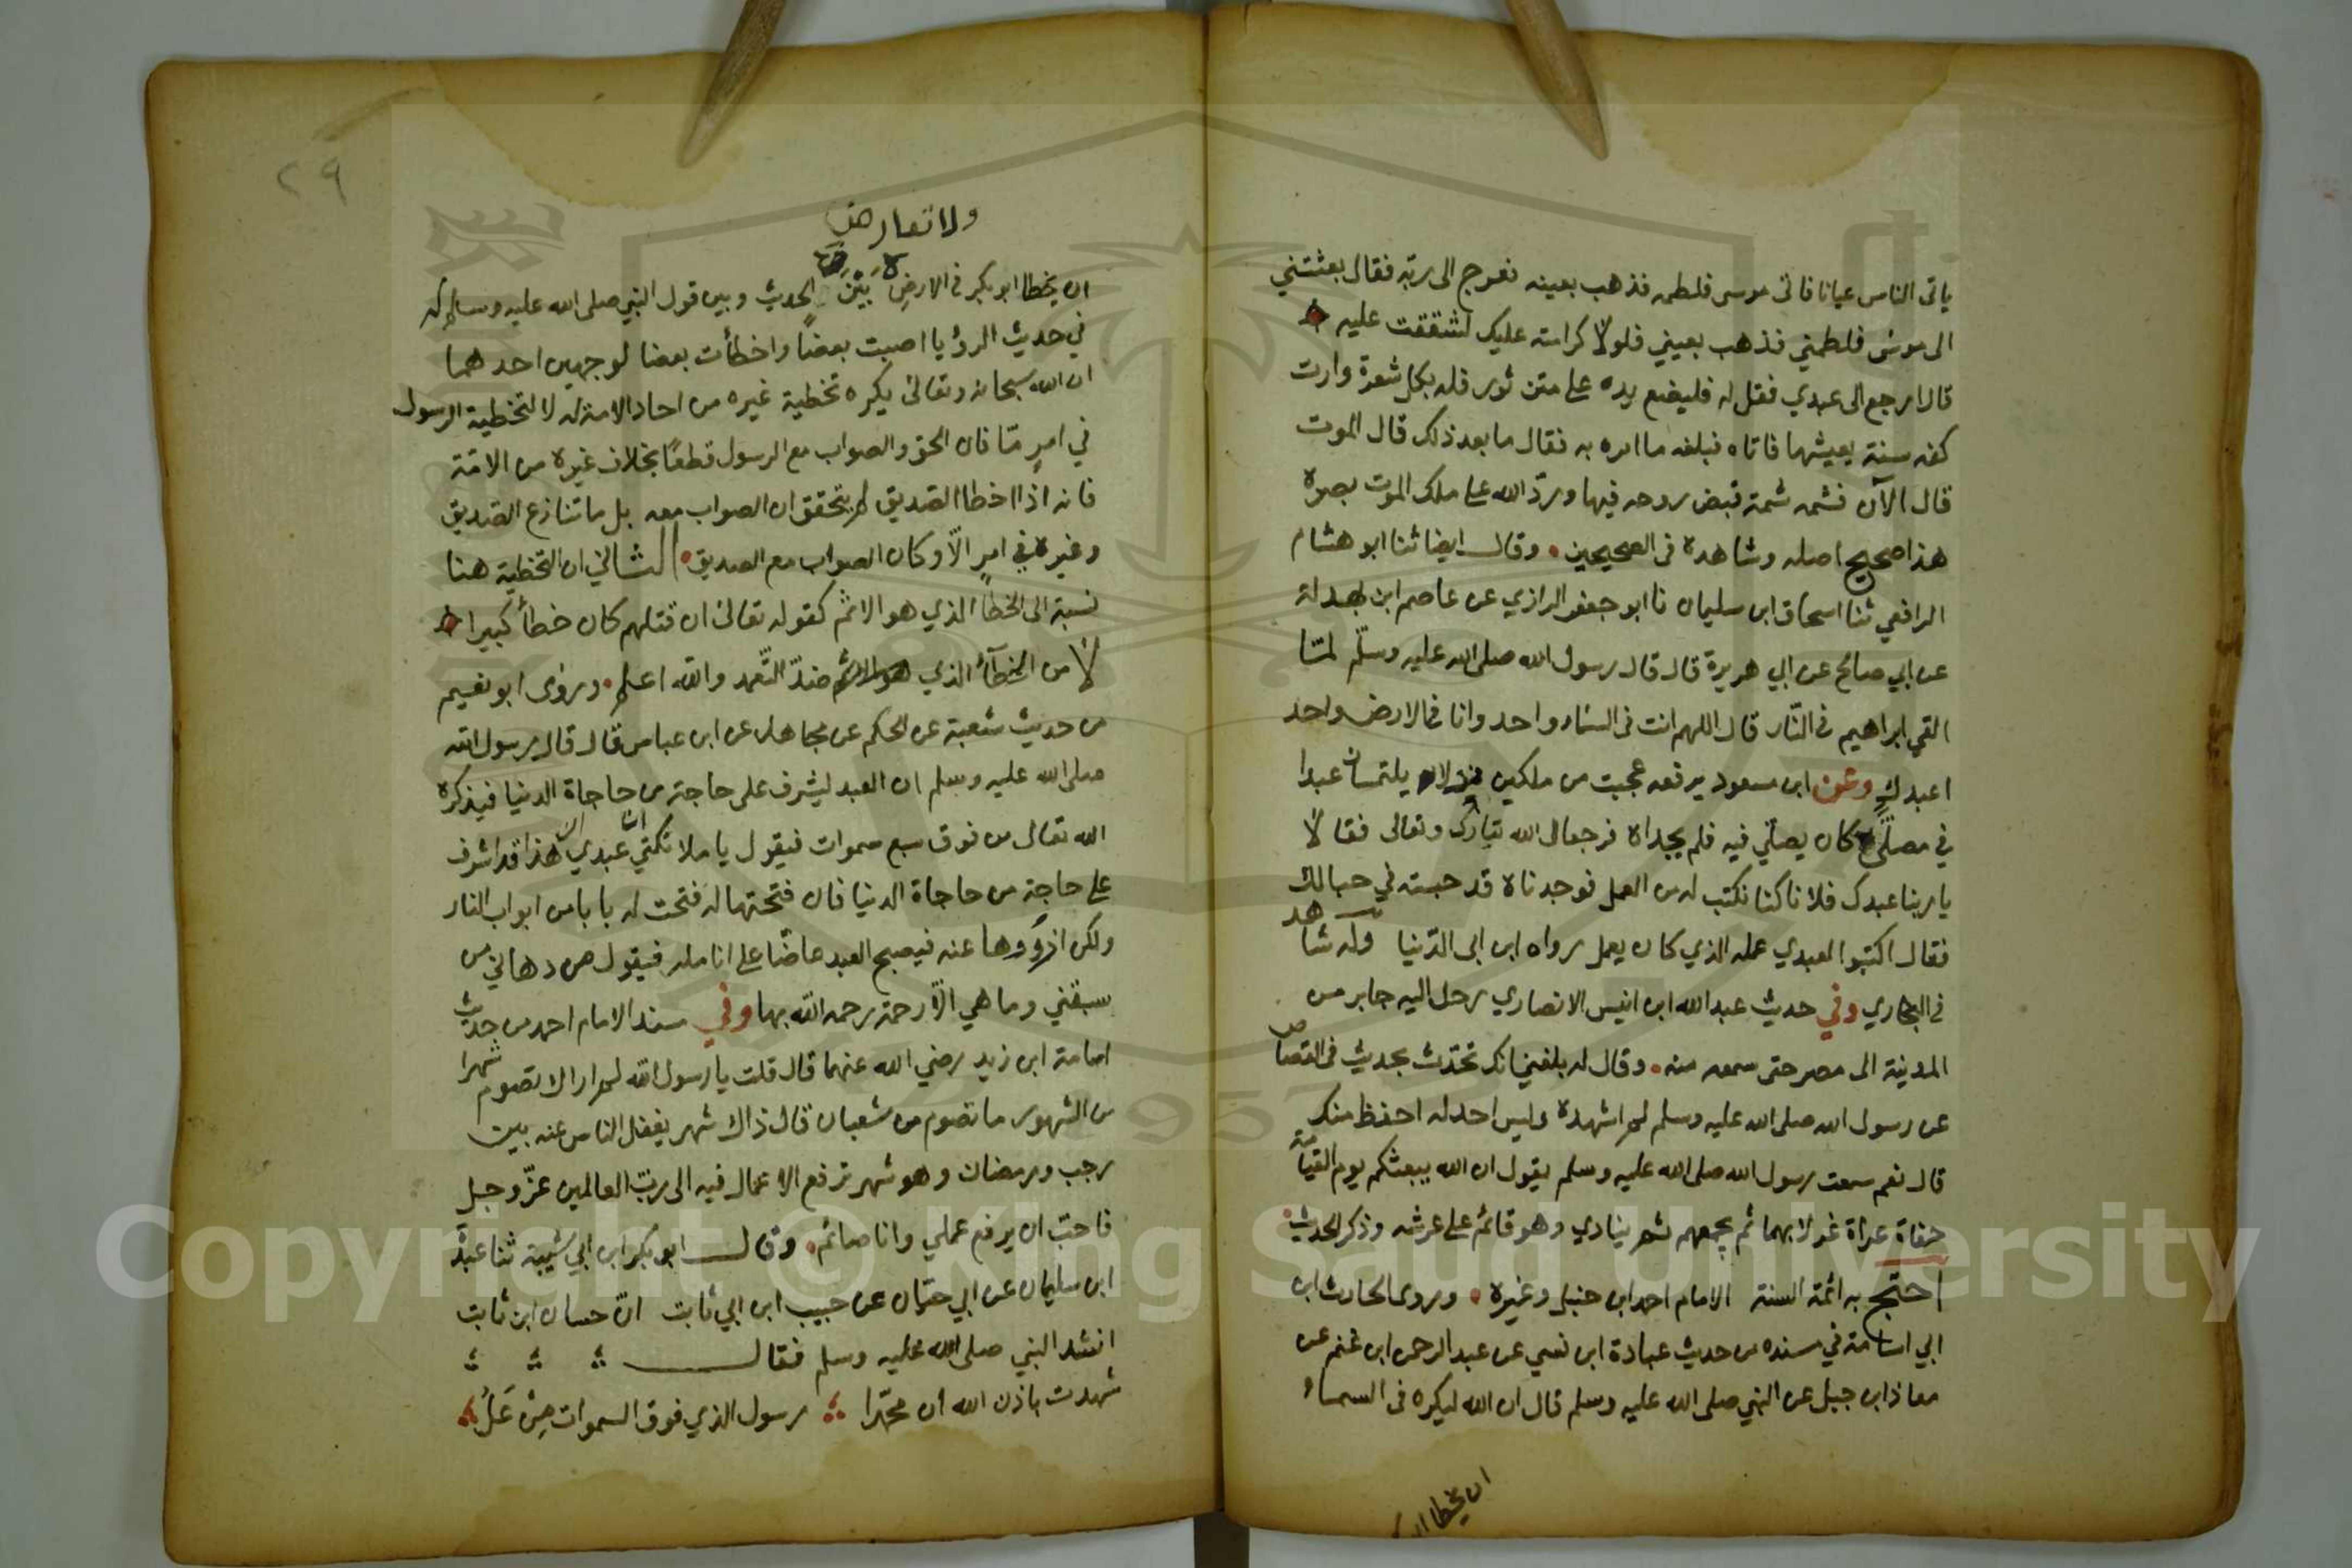 ياتى الناس عيانا فاتى موسى فلطمه فذهب بعينه فعرج الى ربه فقال بعثتني
الى موسى فلطمني فذهب بعيني فلولا كرامته عليك لشققت عليه
قال ارجع الى عبدي فقل له فليضع يده على متن ثور فله بكل شعرة وارت
كفه سنة يعيشها فاتاه فبلغه ما امره به فقال ما بعد ذلك قال الموت
قال الآن فشمه شمة قبض روحه فيها وردّ الله على ملك الموت بصره
هذا صحيح اصله وشاهده فى الصحيحين وقال ايضا ثنا ابو هشام
الرافعي ثنا اسحاق ابن سليمان نا ابو جعفر الرازي عن عاصم ابن بهدلة
عن ابي صالح عن ابي هريرة قال قال رسول الله صلى الله عليه وسلّم لمّا
القي ابراهيم فى النّار قال اللهم انت فى السّماء واحد وانا فى الارض واحد
اعبدك وعن ابن مسعود يرفعه عجبت من ملكين نزلا يلتمسان عبدا
في مصلّى كان يصلّي فيه فلم يجداه فرجعا الى الله تبارك وتعالى فقالا
يا ربنا عبدك فلانا كنا نكتب له من العمل فوجدناه قد حبسته في حبالك
فقال اكتبوا لعبدي عمله الذي كان يعمل رواه ابن ابى الدّنيا وله شاهد
فى البخاري وفي حديث عبد الله ابن انيس الانصاري رحل اليه جابر من
المدينة الى مصر حتى سمعه منه وقال له بلغني انك تحدّث بحديث فى القصاص
عن رسول الله صلى الله عليه وسلم لم اشهده وليس احد له احفظ منك
قال نعم سمعت رسول الله صلى الله عليه وسلم يقول ان الله يبعثكم يوم القيامة
حفاة عراة غرلا بهما ثم يجمعهم ثم ينادي وهو قائم على عرشه وذكر الحديث
احتج به ائمة السنة الامام احمد ابن حنبل وغيره وروى الحارث ابن
ابي اسامة في مسنده من حديث عبادة ابن نسي عن عبد الرحمن ابن غنم عن
معاذ ابن جبل عن النبي صلى الله عليه وسلم قال ان الله ليكره فى السماء
ان يخطا ابو
٢٩
ولا تعارض
ان يخطا ابو بكر فى الارض بَيْنَ الحديث وبين قول النبي صلى الله عليه وسلم له
في حديث الرؤيا اصبت بعضًا واخطأت بعضا لوجهين احدهما
ان الله سبحانه وتعالى يكره تخطية غيره من احاد الامة له لا لتخطية الرسول
في امرٍ مّا فان الحق والصواب مع الرسول قطعًا بخلاف غيره من الامّة
فانه اذا اخطا الصّديق لم يتحقق ان الصواب معه بل ما تنازع الصّديق
وغيره في امرٍ الّا وكان الصواب مع الصديق الثاني ان التخطية هنا
نسبة الى الخطا الذي هو الاثم كقوله تعالى ان قتلهم كان خطأ كبيرا
لا من الخطأ الذي هو ضدّ التّعمد والله اعلم وروى ابو نعيم
من حديث شعبة عن الحكم عن مجاهد عن ابن عباس قال قال رسول الله
صلى الله عليه وسلم ان العبد ليشرف على حاجة من حاجاة الدنيا فيذكره
الله تعالى من فوق سبع سموات فيقول يا ملائكتي ان عبدي هذا قد اشرف
على حاجة من حاجاة الدنيا فان فتحتها له فتحت له بابا من ابواب النار
ولكن ازووها عنه فيصبح العبد عاضّا على انامله فيقول من دهاني من
سبقني وما هي الّا رحمة رحمه الله بها وفي مسند الامام احمد من حديث
اسامة ابن زيد رضي الله عنهما قال قلت يا رسول الله لم ارك تصوم شهرا
من الشهور ما تصوم من شعبان قال ذاك شهر يغفل الناس عنه بين
رجب ورمضان وهو شهر ترفع الاعمال فيه الى ربّ العالمين عزّ وجل
فاحبّ ان يرفع عملي وانا صائم وقال ابو بكر ابن ابي شيبة ثنا عبدة
ابن سليمان عن ابي حيّان عن حبيب ابن ابي ثابت انّ حسان ابن ثابت
انشد النبي صلى الله عليه وسلم فقال
شهدت باذن الله ان محمّدا رسول الذي فوق السموات مِنْ عَلُ
Copyright © King Saud University
1957